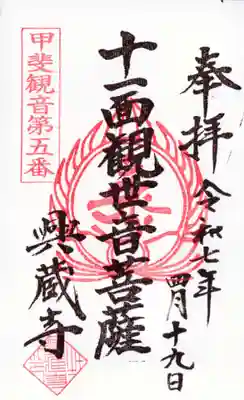 奉拝
令和七年
四月十九日
十一面観世音菩薩
興蔵寺
甲斐観音第五番